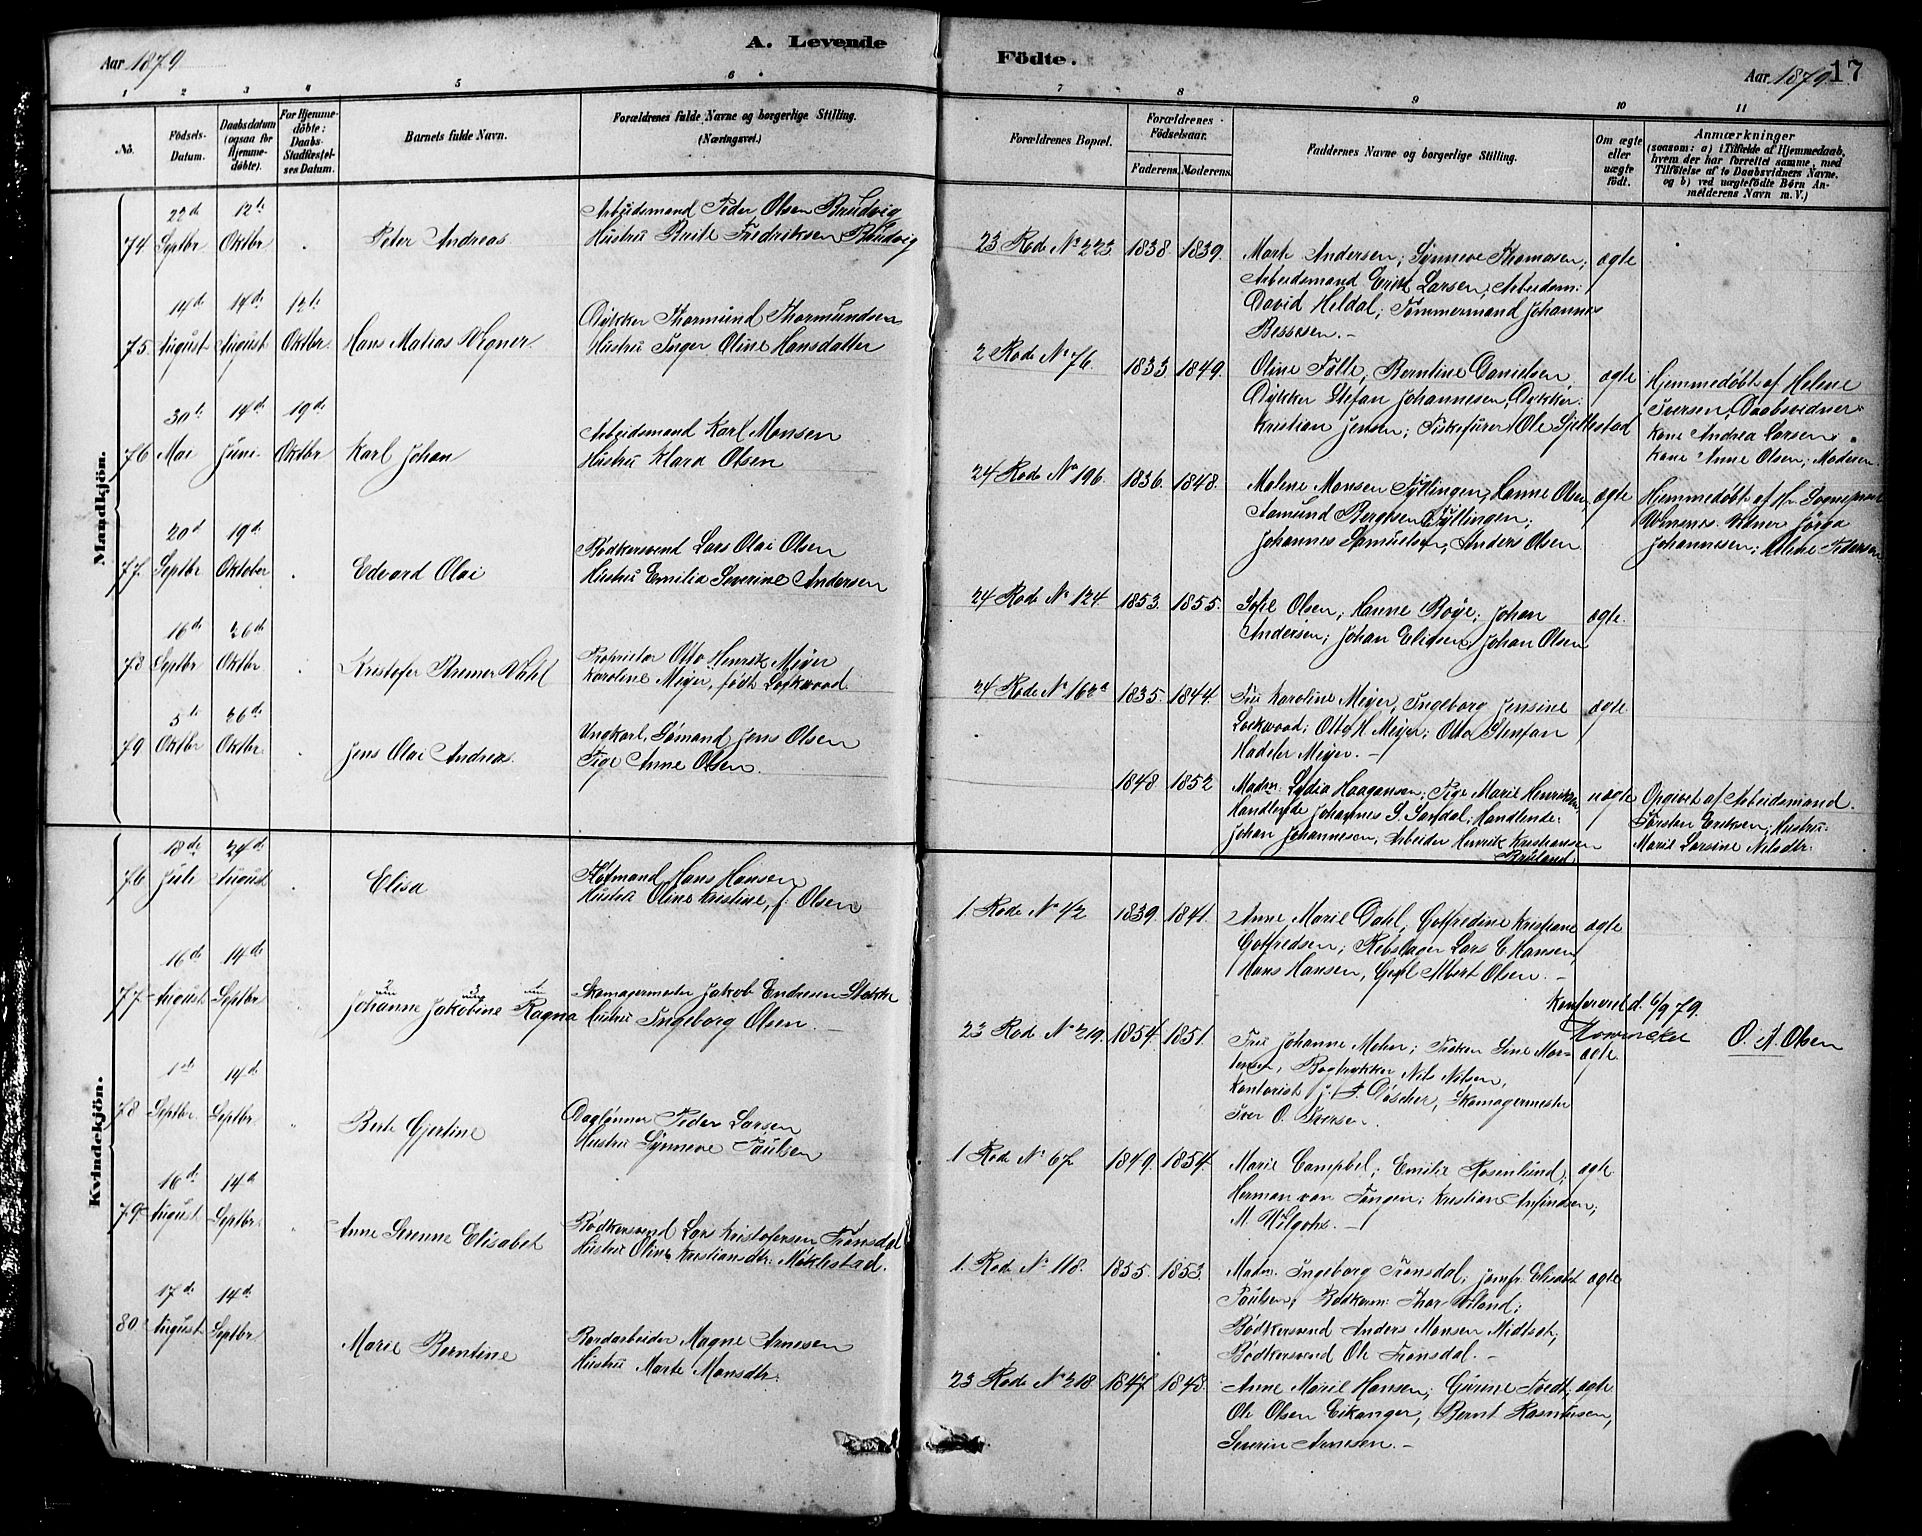 Aar 1879
A. Levende
Födte.
Aar 1879
17
1 2 3 4 5 6 7 8 9 10 11
No.
Födsels-
Datum.
Daabsdatum
(ogsaa for
Hjemme-
döbte).
For Hjemme-
döbte:
Daabs-
Stadfæstel-
ses Datum.
Barnets fulde Navn.
Forældrenes fulde Navne og borgerlige Stilling.
(Næringsvei.)
Forældrenes Bopæl.
Forældrenes
Födselsaar.
Faderens. Moderens.
Faddernes Navne og borgerlige Stilling.
Om ægte
eller
uægte
födt.
Anmærkninger
(saasom: a) i Tilfælde af Hjemmedaab,
hvem der har forrettet samme, med
Tilföielse af to Daabsvidners Navne,
og b) ved uægtefödte Börn An-
melderens Navn m. V.)
Mandkjön.
22de 12te
74 Septbr Oktbr. Peter Andreas
Arbeidsmand Peder Olsen Brudvig
Hustru Brite Fredriksen Brudvig
23 Rode No 223. 1838. 1839.
Marte Andersen; Synneve Thomasen;
Arbeidsmand Erik Larsen; Arbeidsm:
David Heldal; Tømmermand Johannes
Bessesen. -
ægte
14de 14de 12te
75 August August Oktbr. Hans Matias Wegner.
Dykker Thormund Thormundsen
Hustru Inger Oline Hansdatter
2 Rode No 76. 1833 1849.
Oline Følle, Berntine Danielsen,
Dykker Stefan Johannesen, Dykker
Kristian Jensen; Fiskefører Ole Sjellestad
ægte
Hjemmedøbt af Helene
Iversen, Daabsvidner
Kone Andrea Larsen.
Kone Anne Olsen; Moderen.
30te 14de 19de
76 Mai Juni Oktbr Karl Johan
Arbeidsmand Karl Monsen
Hustru Klara Olsen
24 Rode No 196. 1836. 1848.
Malene Monsen Fyllingen; Hanne Olsen,
Aamund Bergesen Fyllingen;
Johannes Samuelsen, Anders Olsen
ægte
Hjemmedøbt af Hr. Sognepræst
Vidner Jørga
Johannesen; Alene Pedersen
20d 19de
77. Septbr Oktober Edvard Olai
Bødkersvend Lars Olai Olsen
Hustru Emilia Severine Andersen
24 Rode No 124 1853. 1855.
Sofie Olsen; Hanne Bøye; Johan
Andersen; Johan Elidsen, Johan Olsen
ægte.
16de 26de
78 Septbr Oktbr Kristofer Bremer Wahl
Proprietær Otto Henrik Meyer
Karoline Meyer, født Lockwood.
24. Rode No 162a 1835. 1844.
Fru Karoline Meyer, Ingeborg Jensine
Lockwood; Otto H Meyer; Otto Stenfan
Hadeler Meyer. -
ægte
5te 26de
79 Oktbr Oktbr. Jens Olai Andreas.
Ungkarl, Sømand Jens Olsen
Pige Anne Olsen.
1848 1852
Madm: Lydia Haagensen; Pige Marie Henriksen
Handlende Johannes S. Sandal; Handlende:
Johan Johannesen, Arbeider Henrik Kristiansen
Bruland
uægte
Opgivet af Arbeidsmand.
Torsten Eriksen; Hustru
Marie Larsine Nilsdtr.
Kvindekjön.
18de 24de
76 Juli August Elisa
Flotmand Hans Hansen
Hustru Oline Kristine, f. Olsen
1 Rode No 42 1839. 1841.
Anne Marie Dahl, Gotfredine Kristiane
Gotfredsen; Rebslager Lars E Hansen,
Hans Hansen, Albert Olsen. -
ægte
Konfereret d. 6/9 79.
O. A. Olsen
16de 14de
77. August Septbr Johanne Jakobine Ragna
Skomagermester Jakob Endresen Stokke
Hustru Ingeborg Olsen. -
23 Rode No 219. 1854. 1851.
Fru Johanne Mohn; Frøken Line Mor-
tensen, Bogtrykker Nils Nilsen,
Kontorist J. F. Døscher, Skomagermester
Iver O. Iversen.
ægte
1ste 14de
78 Septbr. Septbr. Berte Gjertine
Daglønner Peder Larsen
Hustru Synneve Paulsen
1 Rode No 67. 1849. 1854.
Marie Campbel; Emilie Rosenlund;
Herman von Tangen; Kristian Anfindsen;
M. Wilgohs. -
ægte
16de 14d
79. August Septbr. Anne Serenne Elisabet
Bødkersvend Lars Kristofersen Tronsdal
Hustru Oline Kristiansdtr. Møklestad.
1. Rode No 118. 1855. 1853.
Madm. Ingeborg Tronsdal; Jomfr. Elisabet
Paulsen; Bødkerm: Thor
Bødkersvend Anders Monsen Midtsæt,
Bødkersvend Ole Tronsdal. -
ægte
17de 14de
80. August Septbr Marie Berntine
Jordarbeider Magne Arnesen
Hustru Marte Monsdtr.
23 Rode No 218 1847. 1848.
Anne Marie Hansen; Gurine Tvedt,
Ole Olsen Eikanger, Bernt Rasmusen,
Severin Arnesen. -
ægte